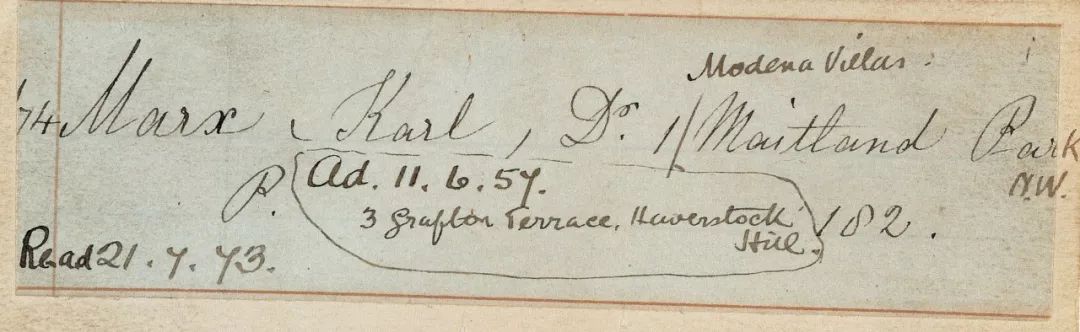 Modena Villas.
74 Marx, Karl, Dr. 1 Maitland Park
N.W.
P. Ad. 11. 6. 57.
3 Grafton Terrace, Haverstock
Hill. 182.
Read 21. 7. 73.